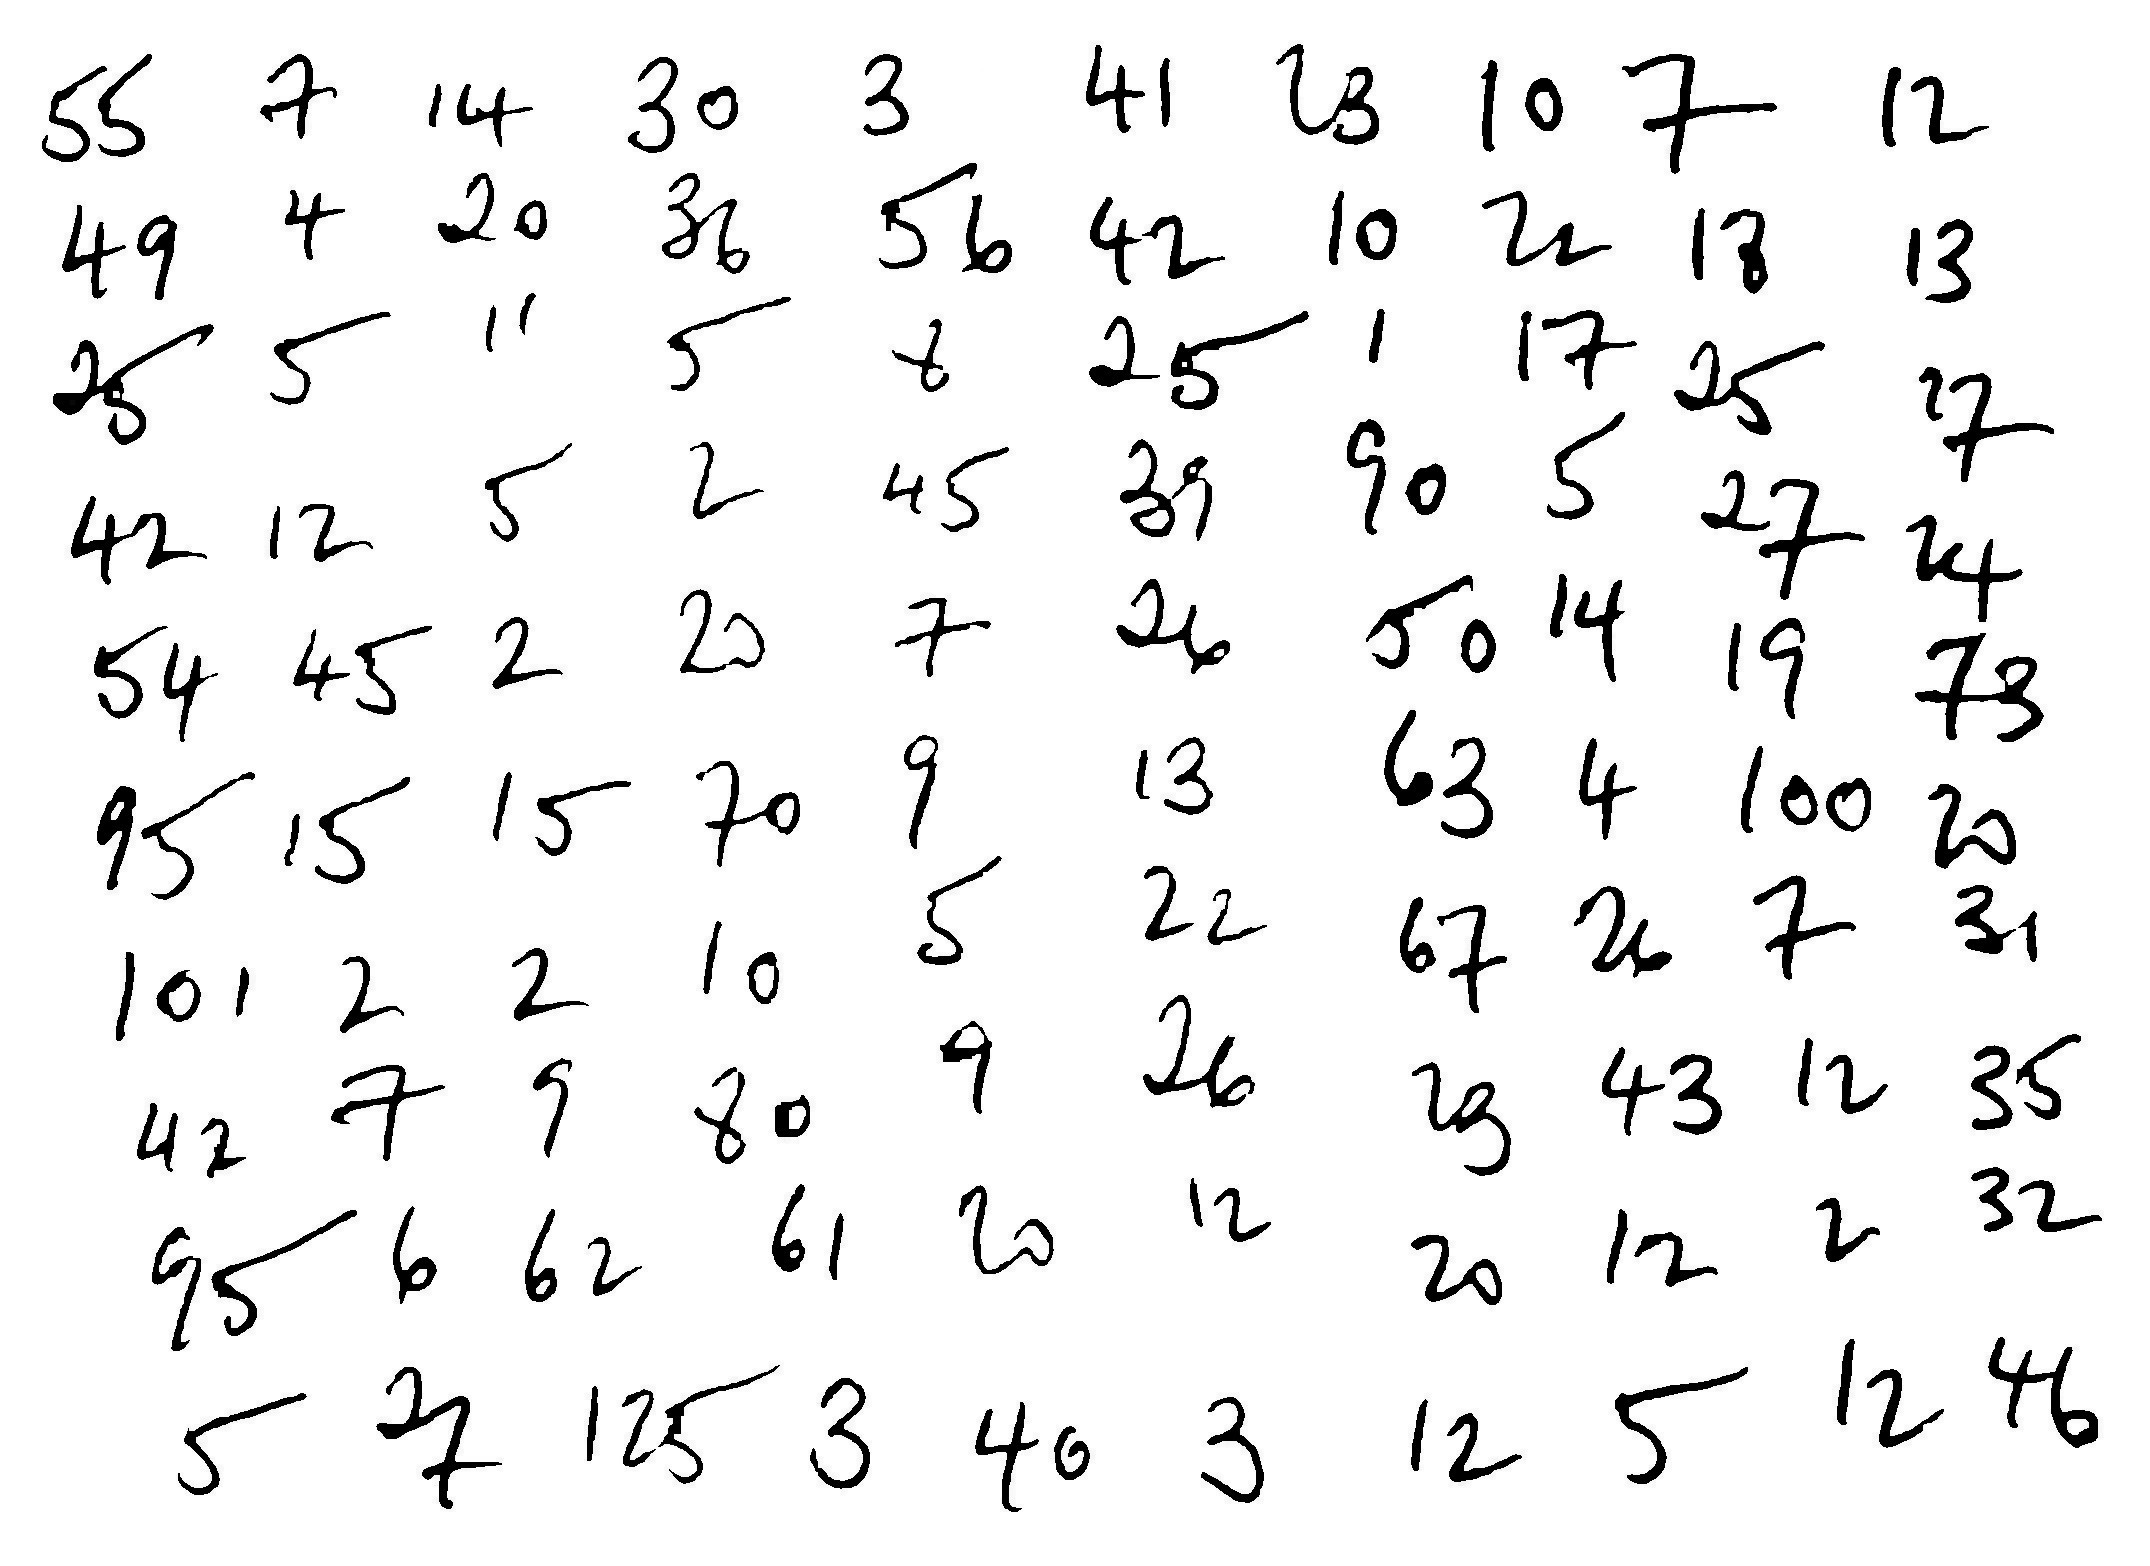 55 7 14 30 3 41 23 10 7 12
49 4 20 36 56 42 10 22 18 13
25 5 11 5 8 25 1 17 25 27
42 12 5 2 45 39 90 5 27 24
54 45 2 20 7 26 50 14 19 73
95 15 15 70 9 13 63 4 100 20
101 2 2 10 5 22 67 26 7 31
42 7 9 80 9 26 23 43 12 35
95 6 62 61 20 12 20 12 2 32
5 27 125 3 40 3 12 5 12 46